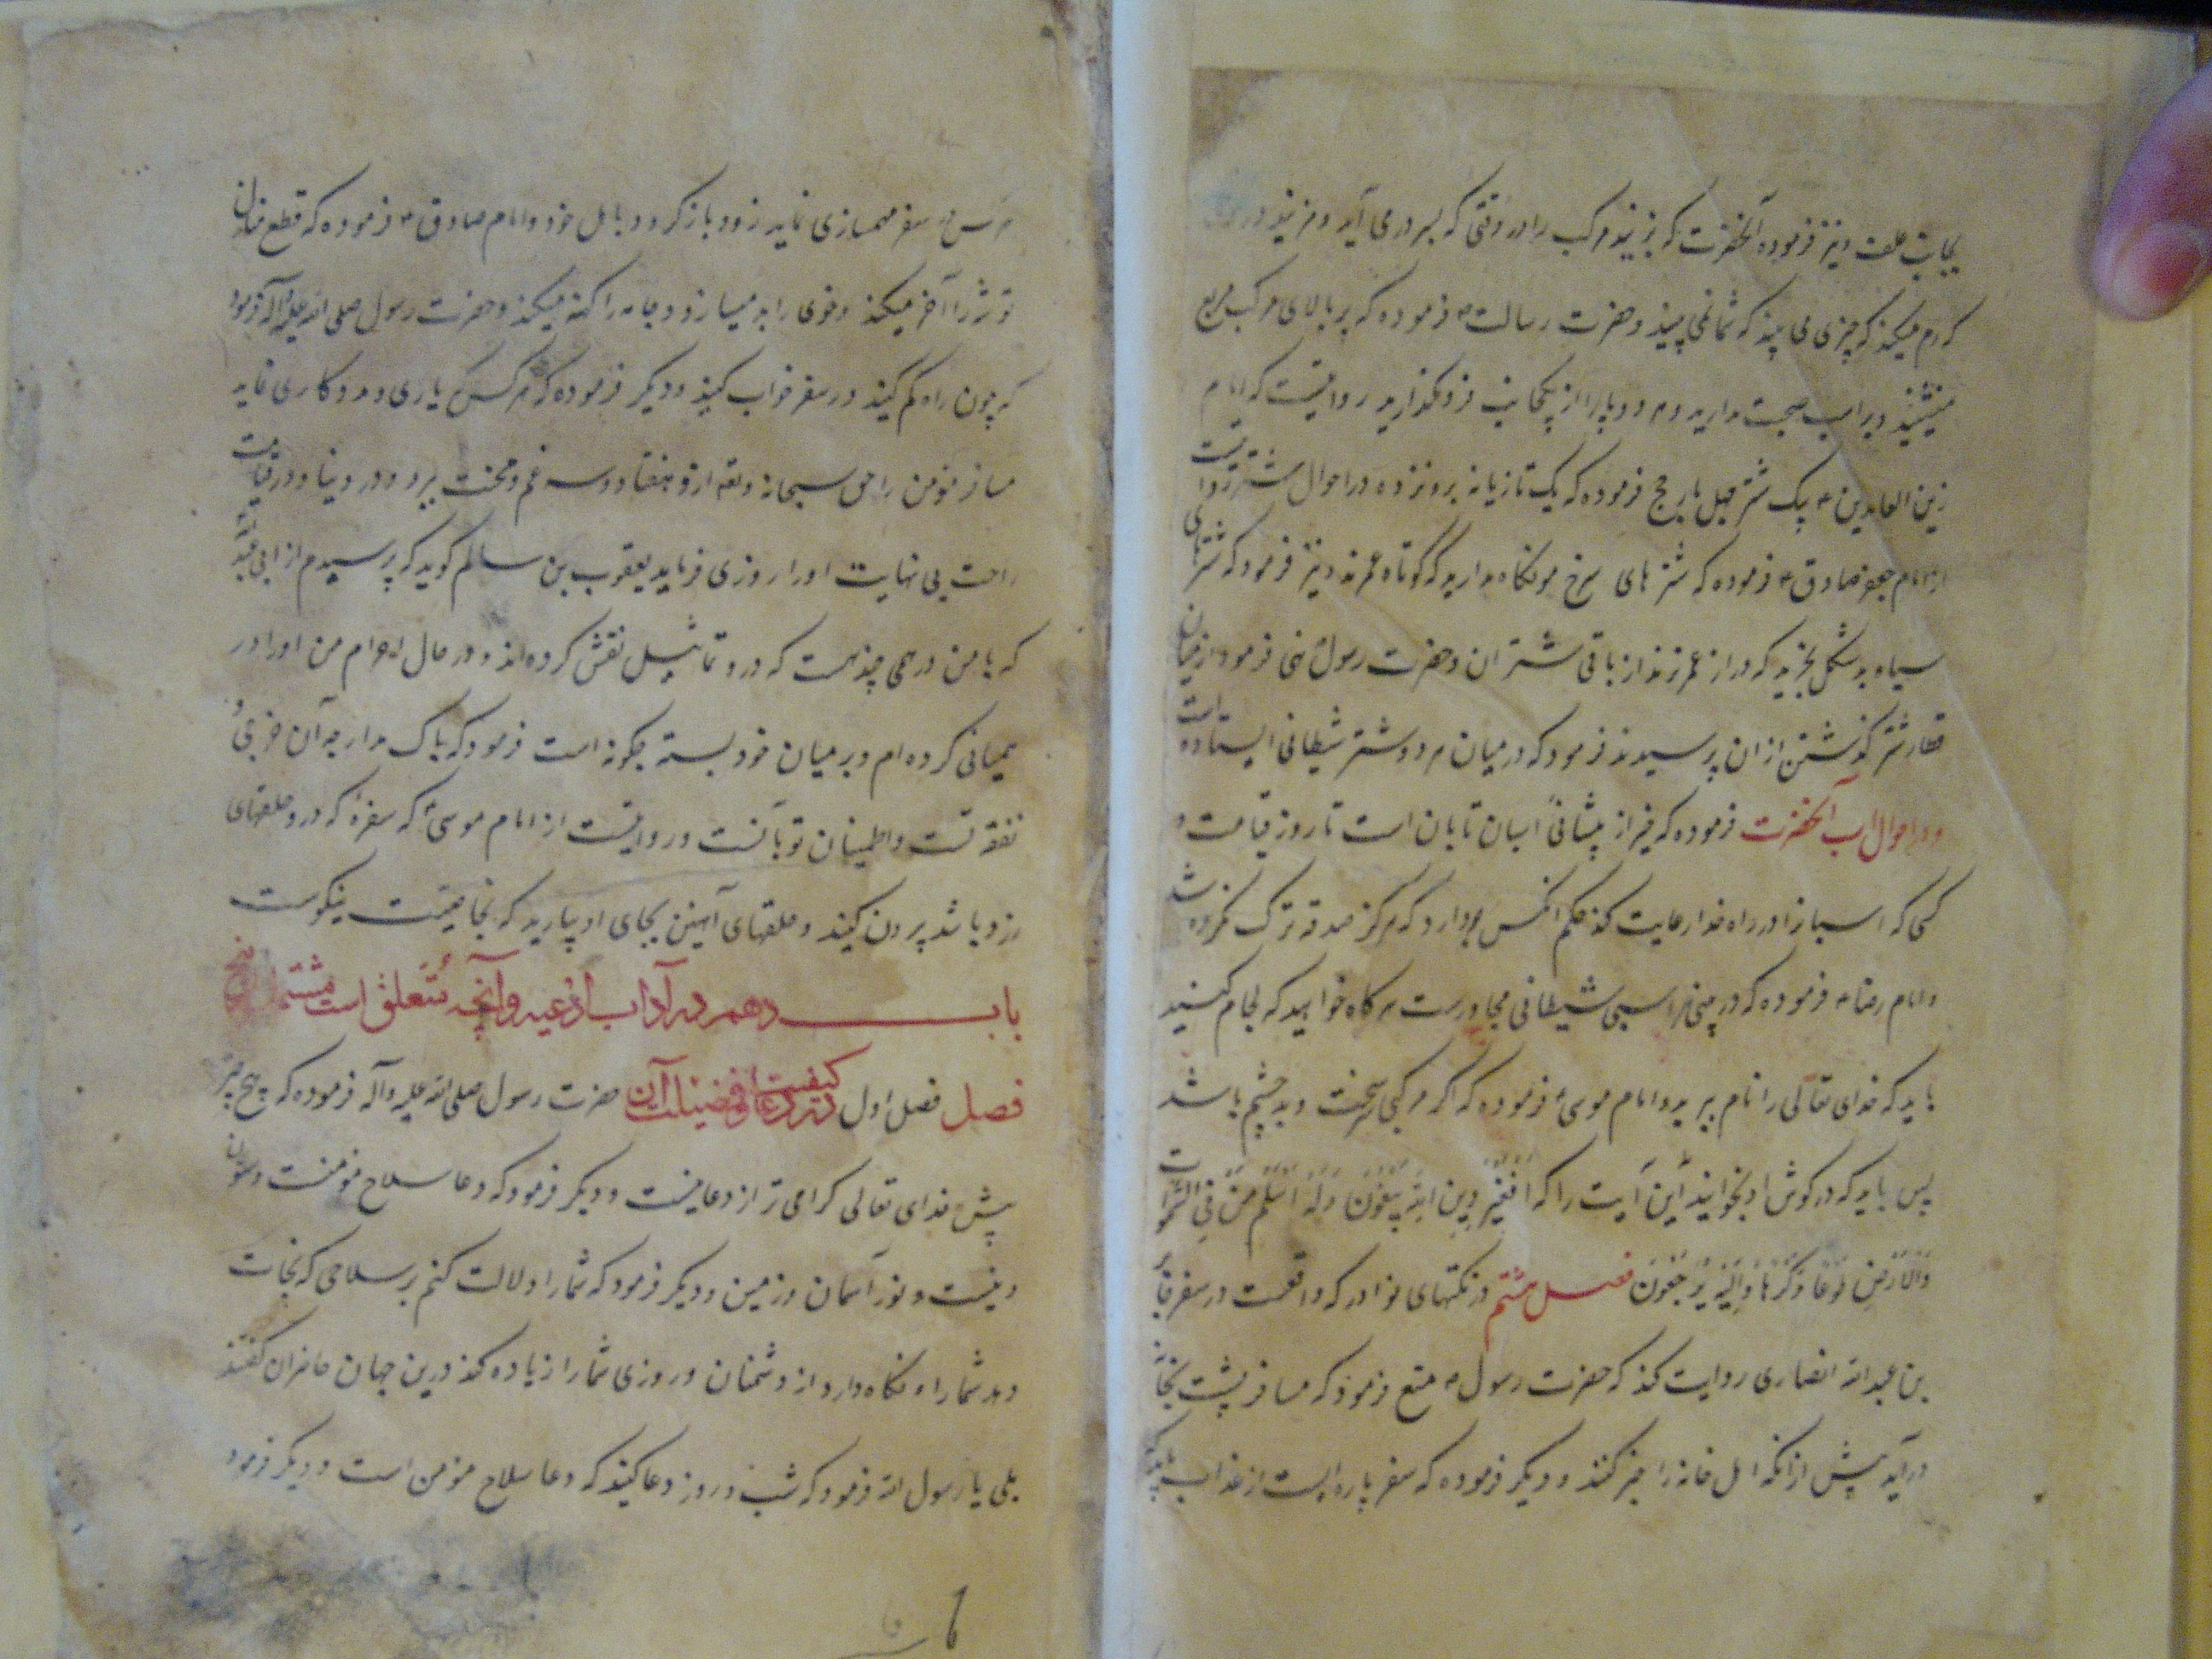 بجانب علف و نیز فرموده آنحضرت که بزنید مرکب را در وقتی که بسر درمی آید و مزنید در
که رم میکند که چیزی می بیند که شما نمی بینید و حضرت رسالت فرموده که بر بالای مرکب مربع
منشینید و بر اسب صحبت مدارید و هر دو پا را از یکجانب فرو مگذارید روایتست که امام
زین العابدین بیک شتر چهل بار حج فرموده که یک تازیانه برو نزده در احوال شتر روایتست
از امام جعفر صادق فرموده که شترهای سرخ مو نگاه مدارید که کوتاه عمرند و نیز فرمود که شترهای
سیاه بدشکل بخرید که دراز عمرترند از باقی شتران و حضرت رسول نهی فرمود از میان
قطار شتر گذشتن از ان پرسیدند فرمود که در میان هر دو شتر شیطانی ایستاده است
و در احوال اسب آنحضرت فرموده که خیر از پیشانی اسبان تابان است تا روز قیامت و
کسی که اسبانرا در راه خدا رعایت کند حکم انکس دارد که هرگز صدقه ترک نکرده باشد
و امام رضا فرموده که در بینی هر اسبی شیطانی مجاورست هر گاه خواهید که لجام کنید
باید که خدای تعالی را نام برید و امام موسی فرموده که اگر مرکبی سخت و بد چشم باشد
پس باید که در گوش او بخوانید این آیت را که اَفَغَیْرَ دِینِ اللهِ یَبْغُونَ وَلَهُ اَسْلَمَ مَنْ فِی السَّمواتِ
وَالْاَرْضِ طَوْعًا وَکَرْهًا وَاِلَیْهِ یُرْجَعُونَ فصل هشتم در نکتهای نوادر که واقعست در سفر جابر
بن عبدالله انصاری روایت کند که حضرت رسول منع فرمود که مسافر بشب بخانه
درآید پیش از آنکه اهل خانه را خبر کند و دیگر فرموده که سفر پاره ایست از عذاب
هر کس سفر همسازی نماید زود باز گردد باهل خود و امام صادق فرموده که قطع منازل
توشه را آخر میکند و خوی را بد میسازد و جامه را کهنه میکند و حضرت رسول صلی الله علیه وآله فرمود
که چون راه گم کنید در سفر خواب کنید و دیگر فرموده که هر کس یاری و مددکاری نماید
مسافر مؤمن را حق سبحانه وتعالی ازو هفتاد و سه غم و محنت ببرد و در دنیا و در قیامت
راحت بی نهایت او را روزی فرماید یعقوب بن سالم گوید که پرسیدم از ابی عبد الله
که با من درهمی چندست که درو تماثیل نقش کرده اند و در حال احرام من او را در
همیانی کرده ام و بر میان خود بسته چگونه است فرمود که باک مدار چه آن خرجی و
نفقه تست و اطمینان تو بآنست و روایتست از امام موسی که سفره که درو حلقهای
زرد باشد بیرون کنید و حلقهای آهنین بجای او بیارید که بخاصیت نیکوست
باب دهم در آداب ادعیه وآنچه متعلق است مشتمل
فصل فصل اول در کیفیت دعا و فضیلت آن حضرت رسول صلی الله علیه وآله فرموده که هیچ چیز
پیش خدای تعالی گرامی تر از دعا نیست و دیگر فرمود که دعا سلاح مؤمنست و ستون
دینست و نور آسمان و زمین و دیگر فرمود که شما را دلالت کنم بر سلاحی که نجات
دهد شما را و نگاه دارد از دشمنان و روزی شما را زیاده کند درین جهان حاضران گفتند
بلی یا رسول الله فرمود که شب و روز دعا کنید که دعا سلاح مؤمن است و دیگر فرمود